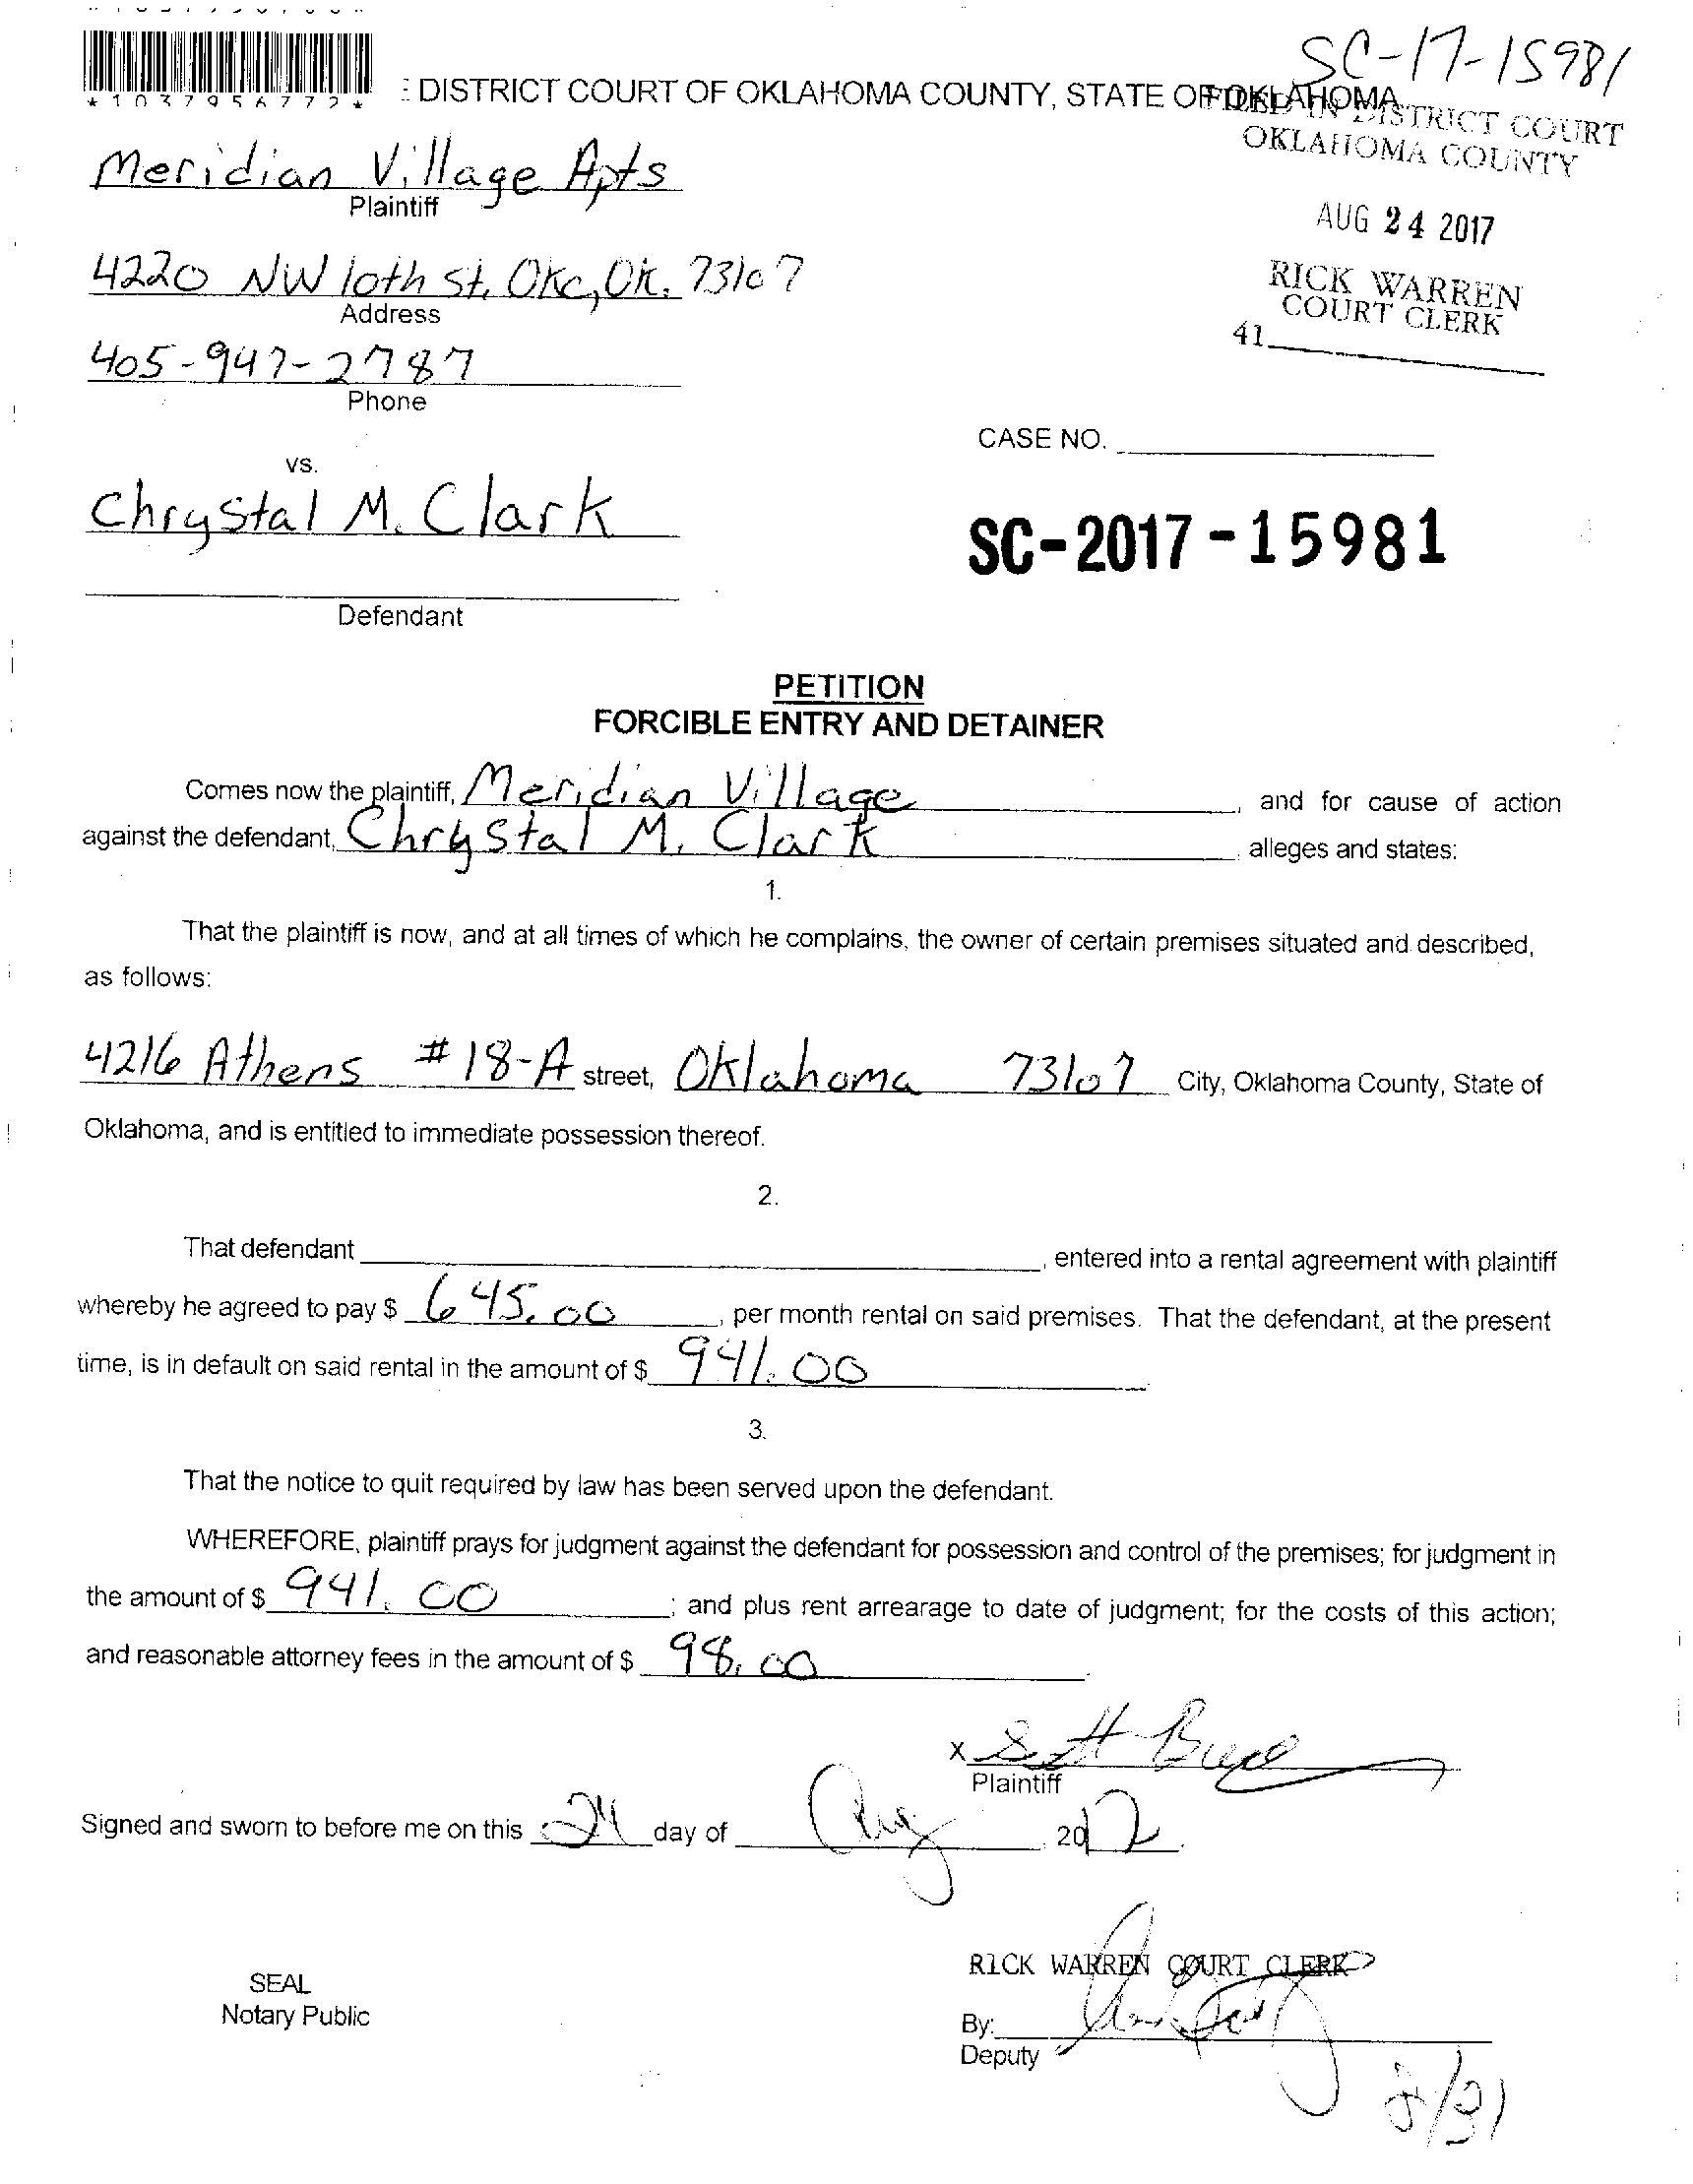 SC-17-15981
*1037956772*
DISTRICT COURT OF OKLAHOMA COUNTY, STATE OF OKLAHOMA
FILED IN DISTRICT COURT
OKLAHOMA COUNTY
Meridian Village Apts
Plaintiff
AUG 24 2017
4220 NW 10th St. Okc, Ok. 73107
Address
RICK WARREN
COURT CLERK
41
405-947-2787
Phone
CASE NO.
vs.
Chrystal M. Clark
SC-2017-15981
Defendant
PETITION
FORCIBLE ENTRY AND DETAINER
Comes now the plaintiff, Meridian Village, and for cause of action
against the defendant, Chrystal M. Clark alleges and states:
1.
That the plaintiff is now, and at all times of which he complains, the owner of certain premises situated and described,
as follows:
4216 Athens #18-A street, Oklahoma 73107 City, Oklahoma County, State of
Oklahoma, and is entitled to immediate possession thereof.
2.
That defendant , entered into a rental agreement with plaintiff
whereby he agreed to pay $ 645.00, per month rental on said premises. That the defendant, at the present
time, is in default on said rental in the amount of $ 941.00
3.
That the notice to quit required by law has been served upon the defendant.
WHEREFORE, plaintiff prays for judgment against the defendant for possession and control of the premises; for judgment in
the amount of $ 941.00; and plus rent arrearage to date of judgment; for the costs of this action;
and reasonable attorney fees in the amount of $ 98.00
X Scott
Plaintiff
Signed and sworn to before me on this 24 day of Aug 2017.
RICK WARREN COURT CLERK
SEAL
Notary Public
By:
Deputy
8/31